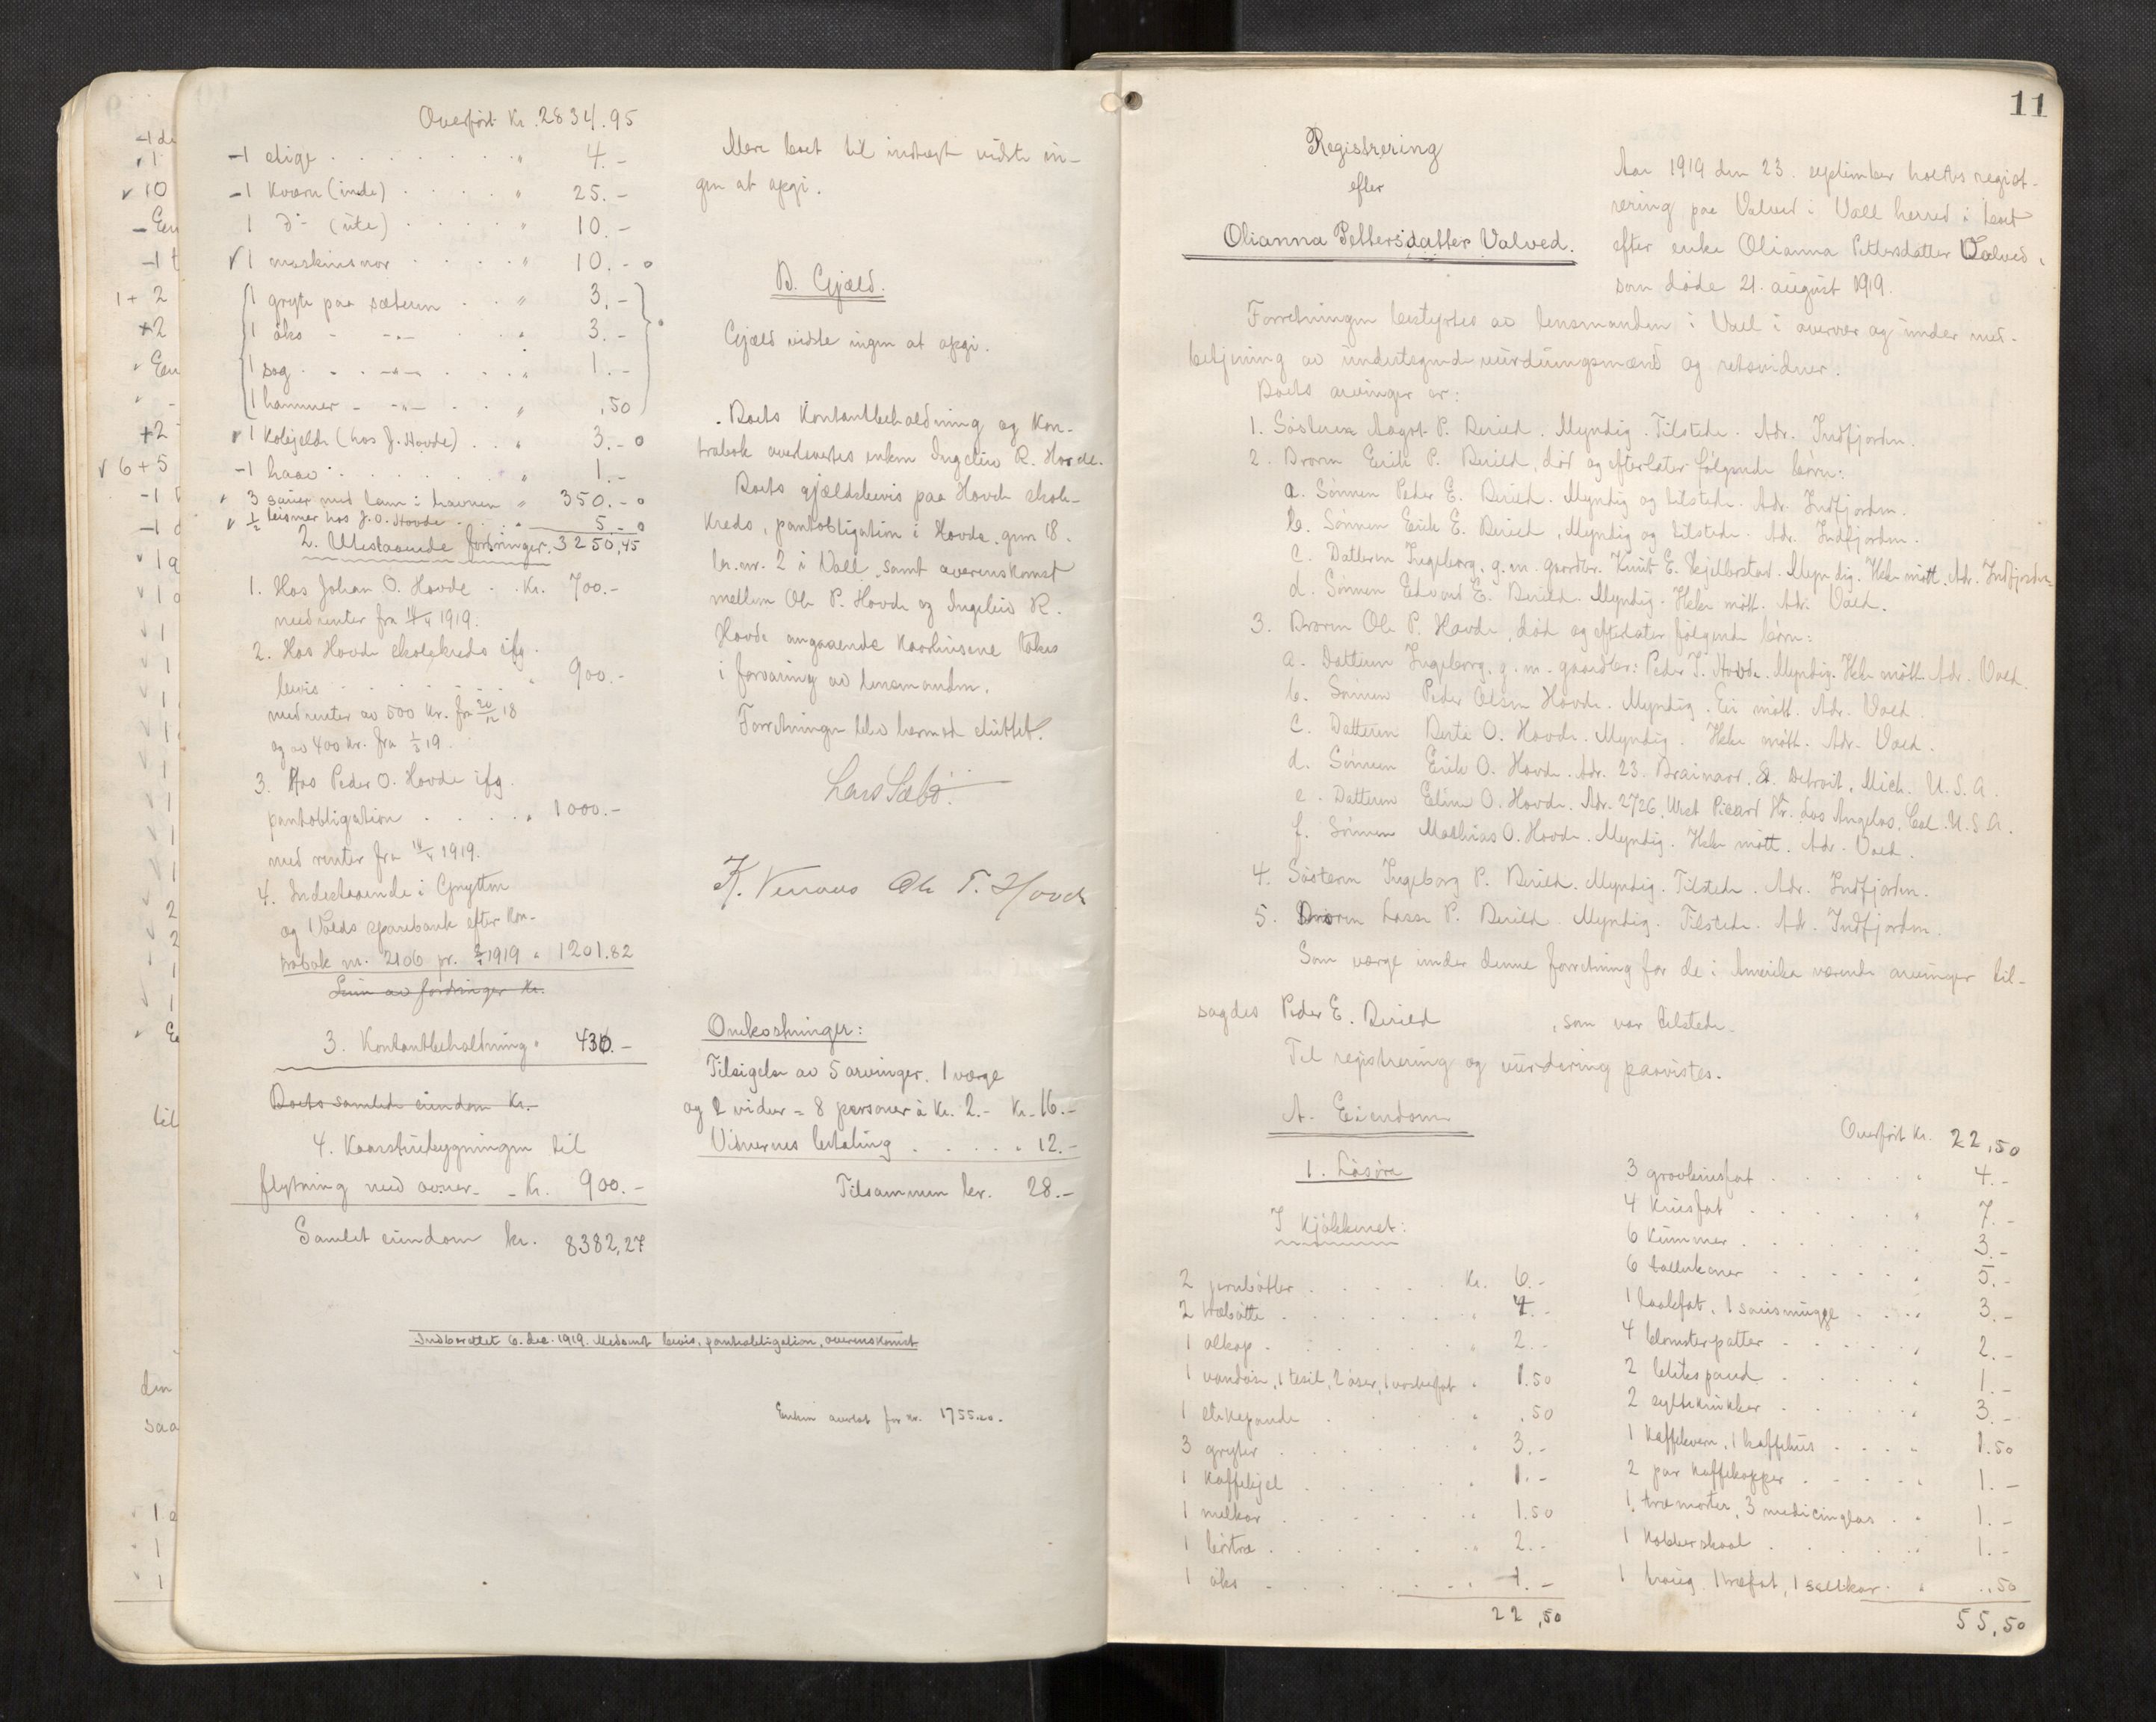 Overført Kr. 2834.95
-1 stige . . . . . . . " 4.-
-1 Kværn (inde) . . . . " 25.-
1 do - (ute) . . . . . " 10.-
√ 1 maskinsnor . . . . " 10.- o
1 gryte paa sæteren . . " 3.-
1 öks - -"- . . . " 3.-
1 sag . . . -"- . . . " 1.-
1 hammer - -"- . . " ,50
√ 1 Kobjelde (hos J. Hovde) . . " 3.- o
-1 haav . . . . . . . " 1.-
√ 3 sauer med lam i havnen " 350.- o
√ ½ bismer hos J. O. Hovde . . . " 5.- o
2. Utestaaende fordringer. 3250,45
1. Hos Johan O. Hovde . . Kr. 700.-
med renter fra 14/4 1919.
2. Hos Hovde skolekreds ifg.
bevis . . . . . . . " 900.-
med renter av 500 kr. fra 20/12 18
og av 400 kr. fra 1/3 19.
3. Hos Peder O. Hovde ifg.
pantobligation . . . . . " 1000.-
med renter fra 14/4 1919.
4. Indestaaende i Gryttin
og Volds sparebank efter Kon-
trabok nr. 2106 pr. 1919 " 1201.82
Sum av fordringer Kr.
3. Kontantbehaldning " 430.-
Boets samlede eiendom Kr.
4. Kaarstuebygningen til
flytning med ovner - - Kr. 900.-
Samlet eiendom kr. 8382,27
Mere boet til indtægt vidste in-
gen at opgi.
B. Gjæld.
Gjæld vidste ingen at opgi.
Boets Kontantbehaldning og Kon-
trabok overleverles enken Ingeleiv R. Hovde.
Boets gjældsbevis paa Hovde skole-
kreds, pantobligation i Hovde, gnr. 18.
br. nr. 2 i Voll, samt overenskomst
mellem Ole P. Hovde og Ingeleiv R.
Hovde angaaende kaarhusene tokes
i forvaring av lensmanden.
Forretningen blev hermed sluttet.
Lars Sæbö.
K. Venaas Ole T. Hovde
Omkostninger:
Tilsigelse av 5 arvinger. 1 værge
og 2 vidner = 8 personer à Kr. 2.- Kr. 16.-
Vidnernes betaling . . . . . " 12.-
Tilsammen kr. 28.-
Indberettet 6. dec. 1919. Medsendt bevis, pantobligation, overenskomst
Enken overtat for kr. 1755.20.
11
Registrering
efter
Olianna Pettersdatter Valved.
Aar 1919 den 23. september holdtes regist-
rering paa Valved i Voll herred i boet
efter enke Olianna Pettersdatter Valved,
som döde 21. august 1919.
Forretningen bestyrtes av lensmanden i Voll i overvær og under med-
betjening av undertegnede vurderingsmænd og retsvidner.
Boets arvinger er:
1. Sösteren Aagot P. Berild. Myndig. Tilstede. Adr. Indfjorden.
2. Broren Erik P. Berild, död og efterlater følgende børn:
a. Sönnen Peder E. Berild. Myndig og tilstede. Adr. Indfjorden.
b. Sönnen Erik E. Berild, Myndig og tilstede. Adr. Indfjorden.
c. Datteren Ingeborg, g. m. gaardbr. Knut E. Skjellerstad. Myndig. Ikke mött. Adr. Indfjorden.
d. Sönnen Edvard E. Berild. Myndig. Ikke mött. Adr. Vold.
3. Broren Ole P. Hovde, död og efterlater følgende børn:
a. Datteren Ingeborg, g. m. gaardbr. Peder T. Hovde. Myndig. Ikke mött. Adr. Vold.
b. Sönnen Peder Olsen Hovde. Myndig. Ei mött. Adr. Vold.
c. Datteren Berte O. Hovde. Myndig. Ikke mött. Adr. Vold.
d. Sönnen Erik O. Hovde. Adr. 23. Brainard St. Detroit, Mich. U. S. A.
e. Datteren Eline O. Hovde. Adr. 2726, West Pickard Str. Los Angelos, Cal. U. S. A.
f. Sönnen Mathias O. Hovde. Myndig. Ikke mött. Adr. Vold.
4. Sösteren Ingeborg P. Berild. Myndig. Tilstede. Adr. Indfjorden.
5. Broren Lasse P. Berild. Myndig. Tilstede. Adr. Indfjorden.
Som værge under denne forretning for de i Amerika værende arvinger til-
sagdes Peder E. Berild , som var tilstede.
Til registrering og vurdering paavistes.
A. Eiendom
1. Lösöre
I kjökkenet:
2 jernbötter . . . . . Kr. 6.-
2 træbötte . . . . . . " 4.-
1 alkop . . . . . . " 2.-
1 vandöse, 1 tesil, 2 öser, 1 vaskefat " 1.50
1 stekepande . . . . . " .50
3 gryter . . . . . . . " 3.-
1 Kaffekjel . . . . . . " 1.-
1 melkar . . . . . . " 1.50
1 börtræ . . . . . . " 2.-
1 öks . . . . . . . " 1.-
22,50
Overført Kr. 22,50
3 grovbrusfat . . . . . . " 4.-
4 Krusfat . . . . . . " 7.-
6 Kummer . . . . . . . 3.-
6 tallerkener . . . . . . " 5.-
1 kaalefat, 1 sausmugge . . . " 3.-
4 blomsterpotter . . . . . " 2.-
2 blikspand . . . . . . 1.-
2 syltekrukker . . . . . " 3.-
1 Kaffekvern, 1 kaffehus . . . . " 1.50
2 par kaffekopper . . . . . " 1.-
1 træmorter, 3 medicinglas . . " 1.-
1 Kobberskaal . . . . . . " 1.-
1 traug, 1 træfat, 1 saltkar . " .50
55,50